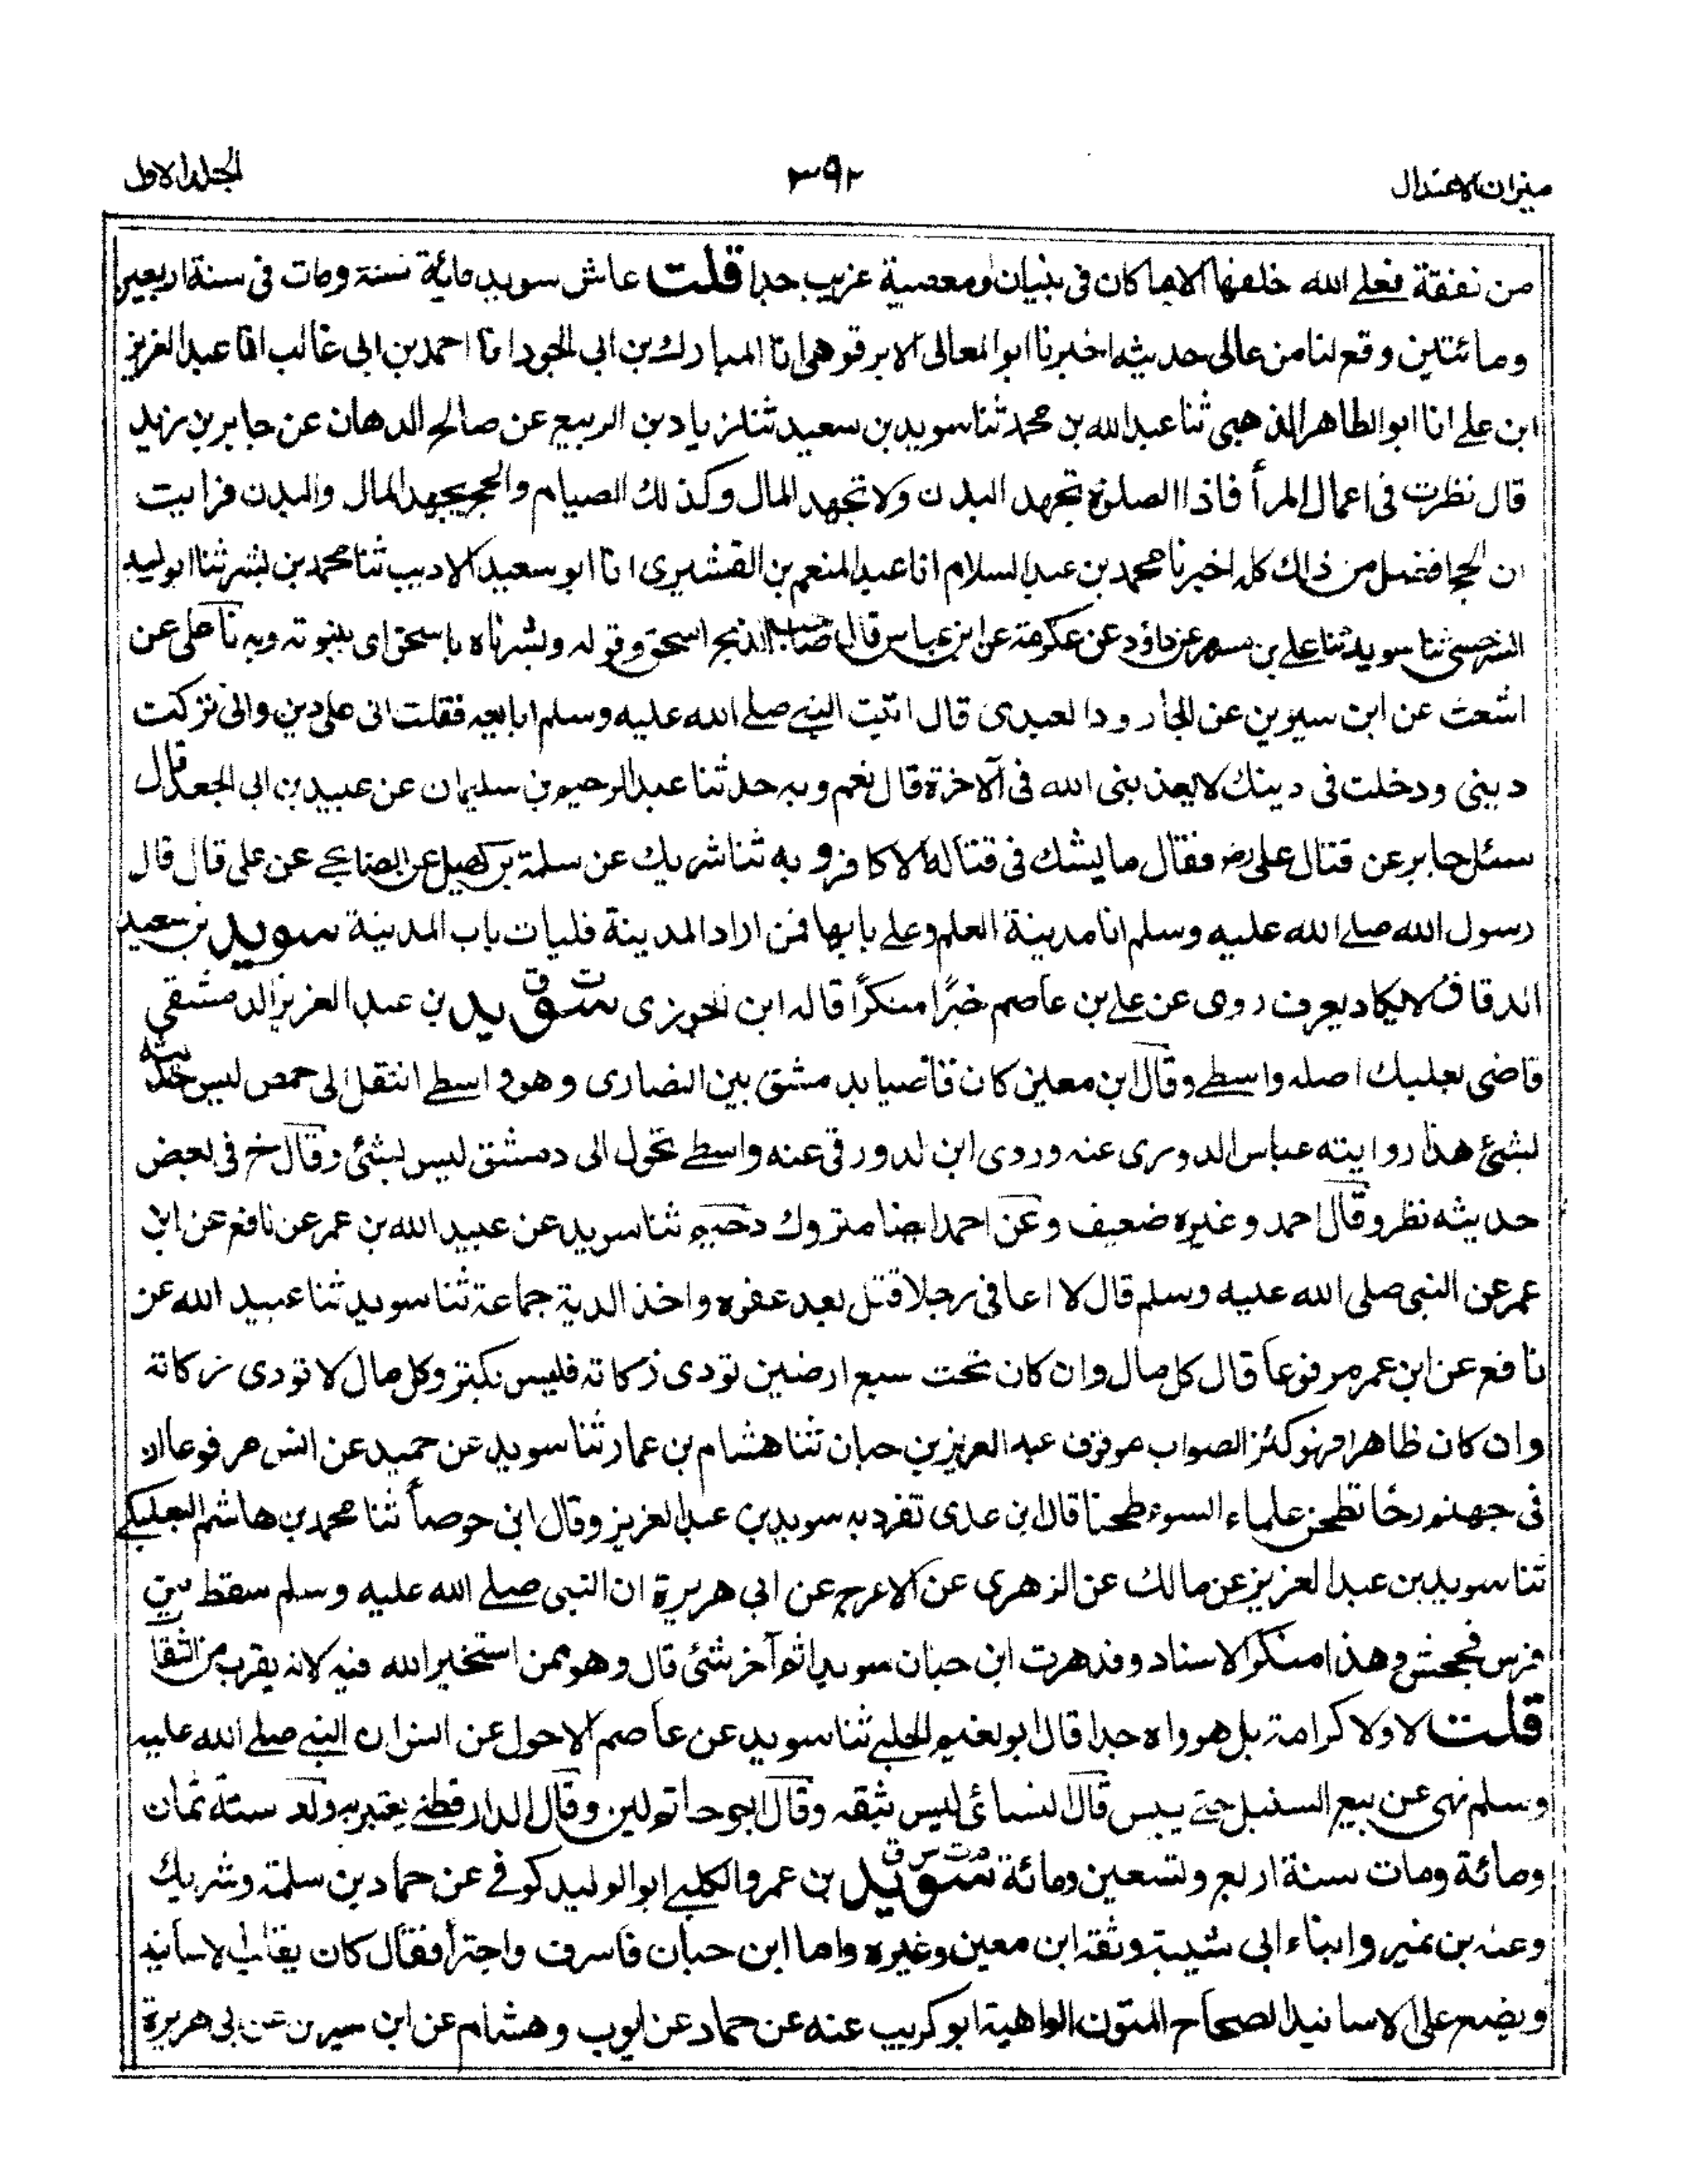 ميزان الاعتدال
٣٩٢
الجلد الاول
من نفقة فعلے الله خلفها الا ما كان فى بنيان او معصية غريب جدا قلت عاش سويد مائة سنة ومات فى سنة اربعين
ومائتين وقع لنا من عالى حديثه اخبرنا ابو المعالى الابرقوهى انا المبارك بن ابى الجود انا احمد بن ابى غالب انا عبد العزيز
ابن علے انا ابو الطاهر الذهبى ثنا عبد الله بن محمد ثنا سويد بن سعيد ثنا زياد بن الربيع عن صالح الدهان عن جابر بن زيد
قال نظرت فى اعمال المرأ فاذا الصلوة تجهد البدن ولا تجهد المال وكذلك الصيام والحج يجهد المال والبدن فرايت
ان الحج افضل من ذلك كله اخبرنا محمد بن عبد السلام انا عبد المنعم بن القشيرى انا ابو سعيد الاديب ثنا محمد بن بشر ثنا ابو لبيد
السرخسى ثنا سويد ثنا علے بن مسهر عن داؤد عن عكرمة عن ابن عباس قال الذبح اسحق وقوله وبشرناه باسحق اى بنبوته وبه نا على عن
اشعث عن ابن سيرين عن الجارود العبدى قال اتيت النبے صلے الله عليه وسلم ابايعه فقلت انى على دين وانى تركت
دينى ودخلت فى دينك لا يعذبنى الله فى الآخرة قال نعم وبه حدثنا عبد الرحيم بن سليمان عن عبيد بن ابى الجعد قال
سئل جابر عن قتال على رض فقال ما يشك فى قتاله الا كافر وبه ثنا شريك عن سلمة بن كهيل عن الصنابحے عن على قال قال
رسول الله صلے الله عليه وسلم انا مدينة العلم وعلے بابها فمن اراد المدينة فليات باب المدينة سويد بن سعيد
الدقاق لا يكاد يعرف روى عن علے بن عاصم خبرًا منكرًا قاله ابن الجوزى ت ق سويد بن عبد العزيز الدمشقى
قاضى بعلبك اصله واسطے وقال ابن معين كان قاضيا بدمشق بين النصارى وهو واسطے انتقل الى حمص ليس حديثه
بشئ هذا رواية عباس الدورى عنه وروى ابن الدورقى عنه واسطے تحول الى دمشق ليس بشئ وقال خ فى بعض
حديثه نظر وقال احمد وغيره ضعيف وعن احمد ايضا متروك دحيم ثنا سويد عن عبيد الله بن عمر عن نافع عن ابن
عمر عن النبى صلى الله عليه وسلم قال لا اعافى رجلا قتل بعد عفوه واخذ الدية جماعة ثنا سويد ثنا عبيد الله عن
نافع عن ابن عمر مرفوعا قال كل مال وان كان تحت سبع ارضين تودى زكاته فليس بكنز وكل مال لا تودى زكاته
وان كان ظاهرا فهو كنز الصواب موقوف عبد العزيز بن حبان ثنا هشام بن عمار ثنا سويد عن حميد عن انس مرفوعا ان
فى جهنم رحا تطحن علماء السوء طحنا قال ابن عدى تفرد به سويد بن عبد العزيز وقال ابن حوصأ ثنا محمد بن هاشم البعلبكے
ثنا سويد بن عبد العزيز عن مالك عن الزهرى عن الاعرج عن ابى هريرة ان النبى صلے الله عليه وسلم سقط من
فرس فجحش وهذا منكر الاسناد وقد هرت ابن حبان سويدا ثم آخر شئ قال وهو ممن استخير الله فيه لانه يقرب من الثقات
قلت لا ولا كرامة بل هو واه جدا قال ابو نعيم الحلبے ثنا سويد عن عاصم الاحول عن انس ان النبے صلے الله عليه
وسلم نهى عن بيع السنبل حتے ييبس قال النسائى ليس بثقه وقال ابو حاتم لين وقال الدارقطنے يعتبر به ولد سنة ثمان
ومائة ومات سنة اربع وتسعين ومائة م ت س ق سويد بن عمرو الكلبے ابو الوليد كوفے عن حماد بن سلمة وشريك
وعنه بن نمير وابناء ابى شيبة وثقه ابن معين وغيره واما ابن حبان فاسرف واجترأ فقال كان يقلب الاسانيد
ويضع على الاسانيد الصحاح المتون الواهية ابو كريب عنه عن حماد عن ايوب وهشام عن ابن سيرين عن ابى هريرة